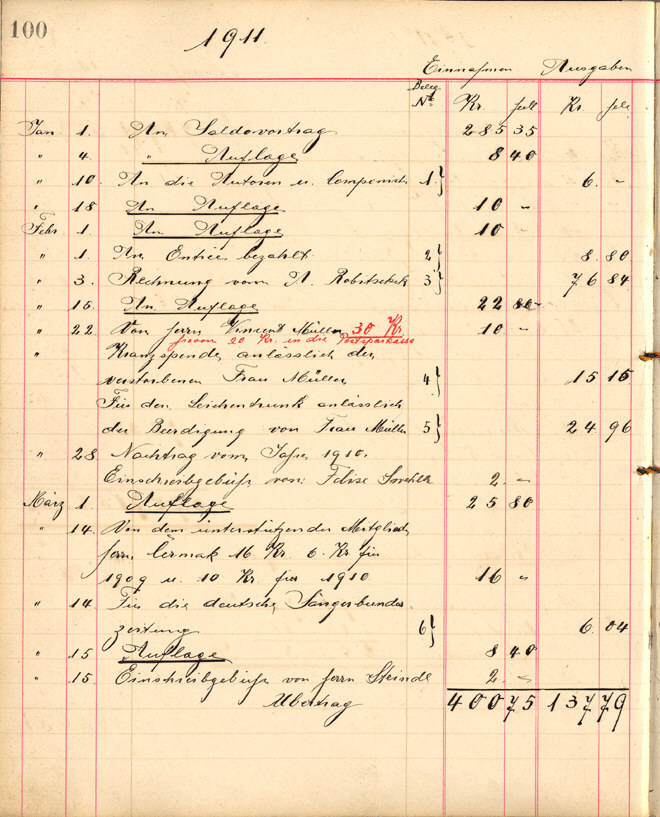 100
1911.
Einnahmen Ausgaben
Beleg
Nº Kr. hell Kr. hell
Jan 1. An Saldovortrag 285 35
" 4. " Auflage 8 40
" 10. An die Autoren u. Componisten 1.} 6. -
" 18 An Auflage 10 -
Febr 1 An Auflage 10 -
" 1. An Entrée bezahlt 2} 8. 80
" 3. Rechnung vom A. Robitschek 3} 76 84
" 15. An Auflage 22 80
" 22 Von Herrn Vincent Müller 30 Kr. 10 -
hievon 20 Kr. in die Postsparkassa
" Kranzspende anlässlich der
verstorbenen Frau Müller 4} 15 15
Für den Leichentrunk anlässlich
der Beerdigung von Frau Müller 5} 24. 96
" 28 Nachtrag vom Jahre 1910.
Einschreibgebühr von: Felix 2 -
März 1. Auflage 25 80
" 14. Von dem unterstützenden Mitglied
Herrn Čermak 16 Kr. 6 Kr für
1909 u. 10 Kr für 1910 16 "
" 14 Für die deutsche Sängerbundes
zeitung 6} 6. 04
" 15 Auflage 8 40
" 15. Einschreibgebühr von Herrn Steindl 2 -
Übertrag 400 75 137 79